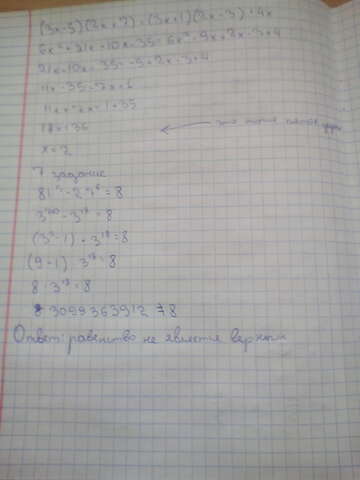 (3x-5)(2x+7)=(3x+1)(2x-3)+4x
6x²+21x-10x-35=6x²-9x+2x-3+4
21x-10x-35=-9+2x-3+4
11x-35=-7x+
11x+7x-1+35
18x=36
x=2
7 задание
81⁵-27⁶=8
3²⁰-3¹⁸=8
(3²-1)·3¹⁸=8
(9-1)·3¹⁸=8
8·3¹⁸=8
3099363912≠8
Ответ: равенство не является верным